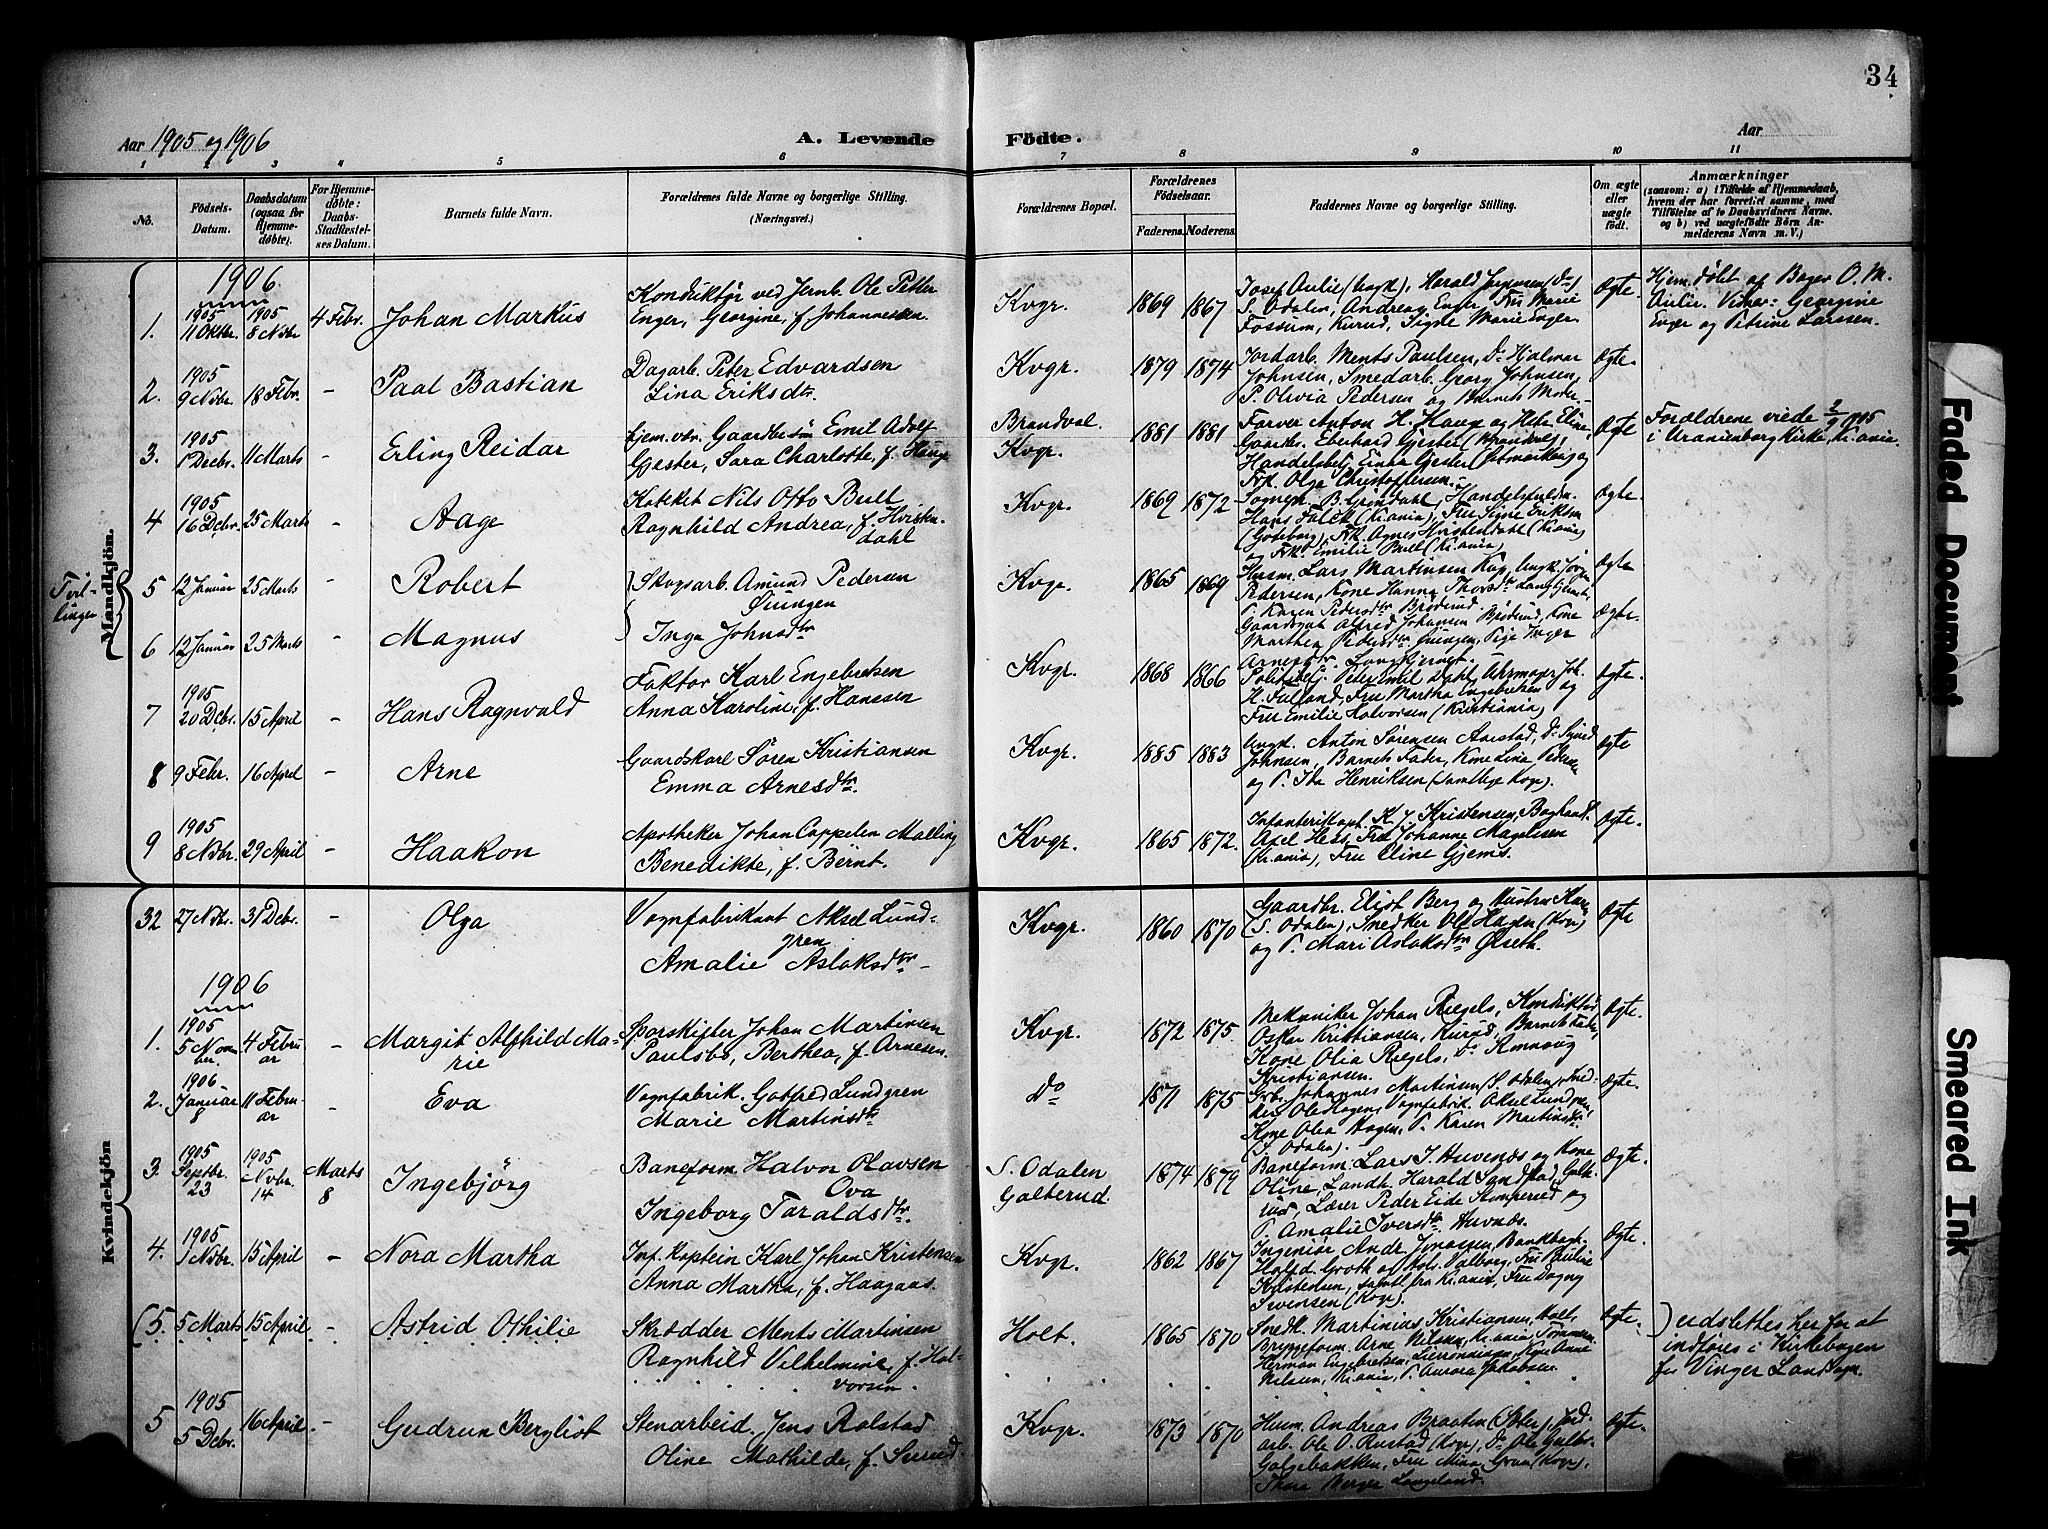 34
Aar 1905 og 1906
A. Levende
Födte.
Aar
1 2 3 4 5 6 7 8 9 10 11
No.
Födsels-
Datum.
Daabsdatum
(ogsaa for
Hjemme-
døbte).
For Hjemme-
døbte:
Daabs-
Stadfæstel-
ses Datum.
Barnets fulde Navn.
Forældrenes fulde Navne og borgerlige Stilling.
(Næringsvei.)
Forældrenes Bopæl.
Forældrenes
Födselsaar.
Faderens. Moderens.
Faddernes Navne og borgerlige Stilling.
Om ægte
eller
uægte
født.
Anmærkninger
(saasom: a) i Tilfælde af Hjemmedaab,
hvem der har forrettet samme, med
Tilföielse af to Daabsvidners Navne.
og b) ved uægtefödte Börn An-
melderens Navn m. V.)
Mandkjön.
1906
1. 1905 11 Oktbr. 1905 8 Novbr 4 Febr. Johan Markus
Konduktør ved Jernb. Ole Petter
Enger, Georgine, f. Johannessen.
Kvgr. 1869 1867
Josef Aulie (Ungk.), Herald Jørgensen (Do)
S. Odalen, Andreas Enger, Fru Marie
Fossum, Kurud, Signe Marie Enger.
Ægte.
Hjem.døbt af Bager O. M.
Aulie. Vidner: Georgine
Enger og Petrine Larssen.
2. 1905 9 Novbr. 18 Febr. - Paal Bastian
Dagarb. Peter Edvardsen
Lina Eriksdtr.
Kvgr. 1879 1874
Jordarb. Ments Paulsen, Do Hjalmar
Johnsen, Smedarb. Georg Johnsen,
P. Olivia Pedersen og Barnets Moder.
Ægte.
3. 1905 1 Decbr. 11 Marts - Erling Reidar
hjem.vær. Gaardbr.søn Emil Adolf
Gjester, Sara Charlotte, f. Hauge
Brandval.
Kvgr.
1881 1881
Farver Anton H. Hauge og Hstr. Eline,
Gaardbr. Eberhard Gjester (Brandval),
Handelsbetj. Einar Gjester og
Frk. Olga Christoffersen.
Ægte
Forældrene viede 1905
i Uranienborg Kirke, Kr.ania.
4 1905 16 Debr. 25 Marts - Aage
Kateket Nils Otto Bull
Ragnhild Andrea, f. Hvisten-
dahl
Kvgr. 1869 1872
Sognepr. B. Grøndahl, Handelsfuldm.
Hans Falck (Kr.ania), Fru Signe Eriksen
(Göteborg), Frk. Agnes Hvistendahl (Kr.ania)
og Frk. Emilie Bull (Kr.ania)
Ægte.
Tvil-
linger
5 12 Januar 25 Marts - Robert
Skogsarb. Amund Pedersen
Øiungen
Kvgr. 1865 1869
Husm. Lars Martinsen Kop, Ungk. Jørgen
Pedersen, Kone Hanna Thorsdtr
P. Karen Pedersdtr Brøderud
Ægte
6 12 Januar 25 Marts - Magnus
Inga Johnsdtr
Gaardsgut Alfred Johansen Brøderud, Kone
Marthea Pedersdtr Øiungen, Pige Inger
Arnesdtr.
Ægte.
7 1905 20 Debr. 15 April - Hans Ragnvald
Faktor Karl Engebretsen
Anna Karoline, f. Hanssen
Kvgr. 1868 1866
Politibetj. Peter Emil Dahl, Uhrmager Joh.
H. Fulland, Fru Martha Engebretsen og
Fru Emilie Halvorsen (Kristiania)
Ægte.
8 9 Febr. 16 April - Arne
Gaardskarl Søren Kristiansen
Emma Arnesdtr.
Kvgr. 1885 1883
Ungk. Anton Sørensen Aarstad, Do Sigurd
Johnsen, Barnets Fader, Kone Lina Pedersen
og P. Ida Henriksen (samtlige Kvgr).
Ægte
9 1905 8 Novbr. 29 April - Haakon
Apotheker Johan Cappelen Malling
Benedikte, f. Bernt.
Kvgr. 1865 1872.
Infanterikapt. K. J. Kristensen, Boghandl.
Axel Hess, Fru Johanne Magelssen
(Kr.ania), Fru Eline Gjems.
Ægte.
Kvindekjön
32 27 Novbr. 31 Debr. - Olga
Vognfabrikant Aksel Lund-
gren
Amalie Aslaksdtr -
Kvgr. 1860 1870
Gaardbr. Elist Berg og Hustru
(S. Odalen), Snedker Ole Hagen (Kvgr)
og P. Mari Aslaksdtr Ølseth.
Ægte
1906
1. 1905 5 Novem-ber. 4 Febru-ar - Margit Alfhild Ma-
rie
Sporskifter Johan Martinsen
Paulsbo, Berthea, f. Arnesen.
Kvgr. 1872 1875.
Mekaniker Johan Riegels, Konduktør
Oskar Kristiansen, Kurud, Barnets Fader,
Kone Olia Riegels, Do Ramnaug
Kristiansen.
Ægte.
2. 1906 Januar 8 11 Febru-ar - Eva
Vognfabrik. Gotfred Lundgren
Marie Martinsdtr
Do 1871 1875
Grbr. Johannes Martinsen (S. Odalen), Sned-
ker Ole Hagen, Vognfabrik. Aksel Lundgren,
Kone Olea Hagen, P. Karen Martinsdtr.
(S. Odalen).
Ægte.
3. 1905 Septbr. 23 1905 Novbr. 14 Marts 8 Ingebjörg
Baneform. Halvor Olavsen
Ova
Ingeborg Taraldsdtr.
S. Odalen
Galterud.
1874 1879
Baneform. Lars I. Huvenes og Kone
Oline, Landh. Harald Sandstad, Galte-
rud, Lærer Peder Eide Stomperud og
P. Amalie Iversdtr Huvnes.
Ægte.
4. 1905 1 Novbr. 15 April - Nora Martha
Inf. Kaptein Karl Johan Kristensen
Anna Martha, f. Haagaas.
Kvgr. 1862 1867
Ingeniør Andr. Jonassen, Bankbogh.
Halfd. Groth og Hstr. Valborg, Frk Pauline
Kristensen, samtl. fra Kr.ania, Fru Dagny
Svensen (Kvgr).
Ægte.
(5. 5 Marts 15 April - Astrid Othilie
Skrædder Ments Martinsen
Ragnhild Vilhelmine, f. Hal-
vorsen.
Holt. 1865 1870
Snedk. Martinius Kristiansen, Holt,
Bryggeform. Arne Nilsen, Kr.ania, Tømmerm.
Herman Engebretsen, Pige Anne
Nilsen, Kr.ania, P. Aurora Jakobsen.
Ægte.
) udslettes her for at
indføres i Kirkebogen
for Vinger Landsogn.
5 1905 5 Debr. 16 April - Gudrun Bergliot
Stenarbeid. Jens Rolstad
Oline Mathilde, f. Surud
Kvgr. 1873 1870
Husm. Andreas Braaten, Jord-
arb. Ole O. Rustad (Kvgr), Do Ole Galbr.
Galgebakken, Fru Mina Gran (Kvgr),
Thora Berger Langeland.
Ægte.
Faded Document
Smeared Ink